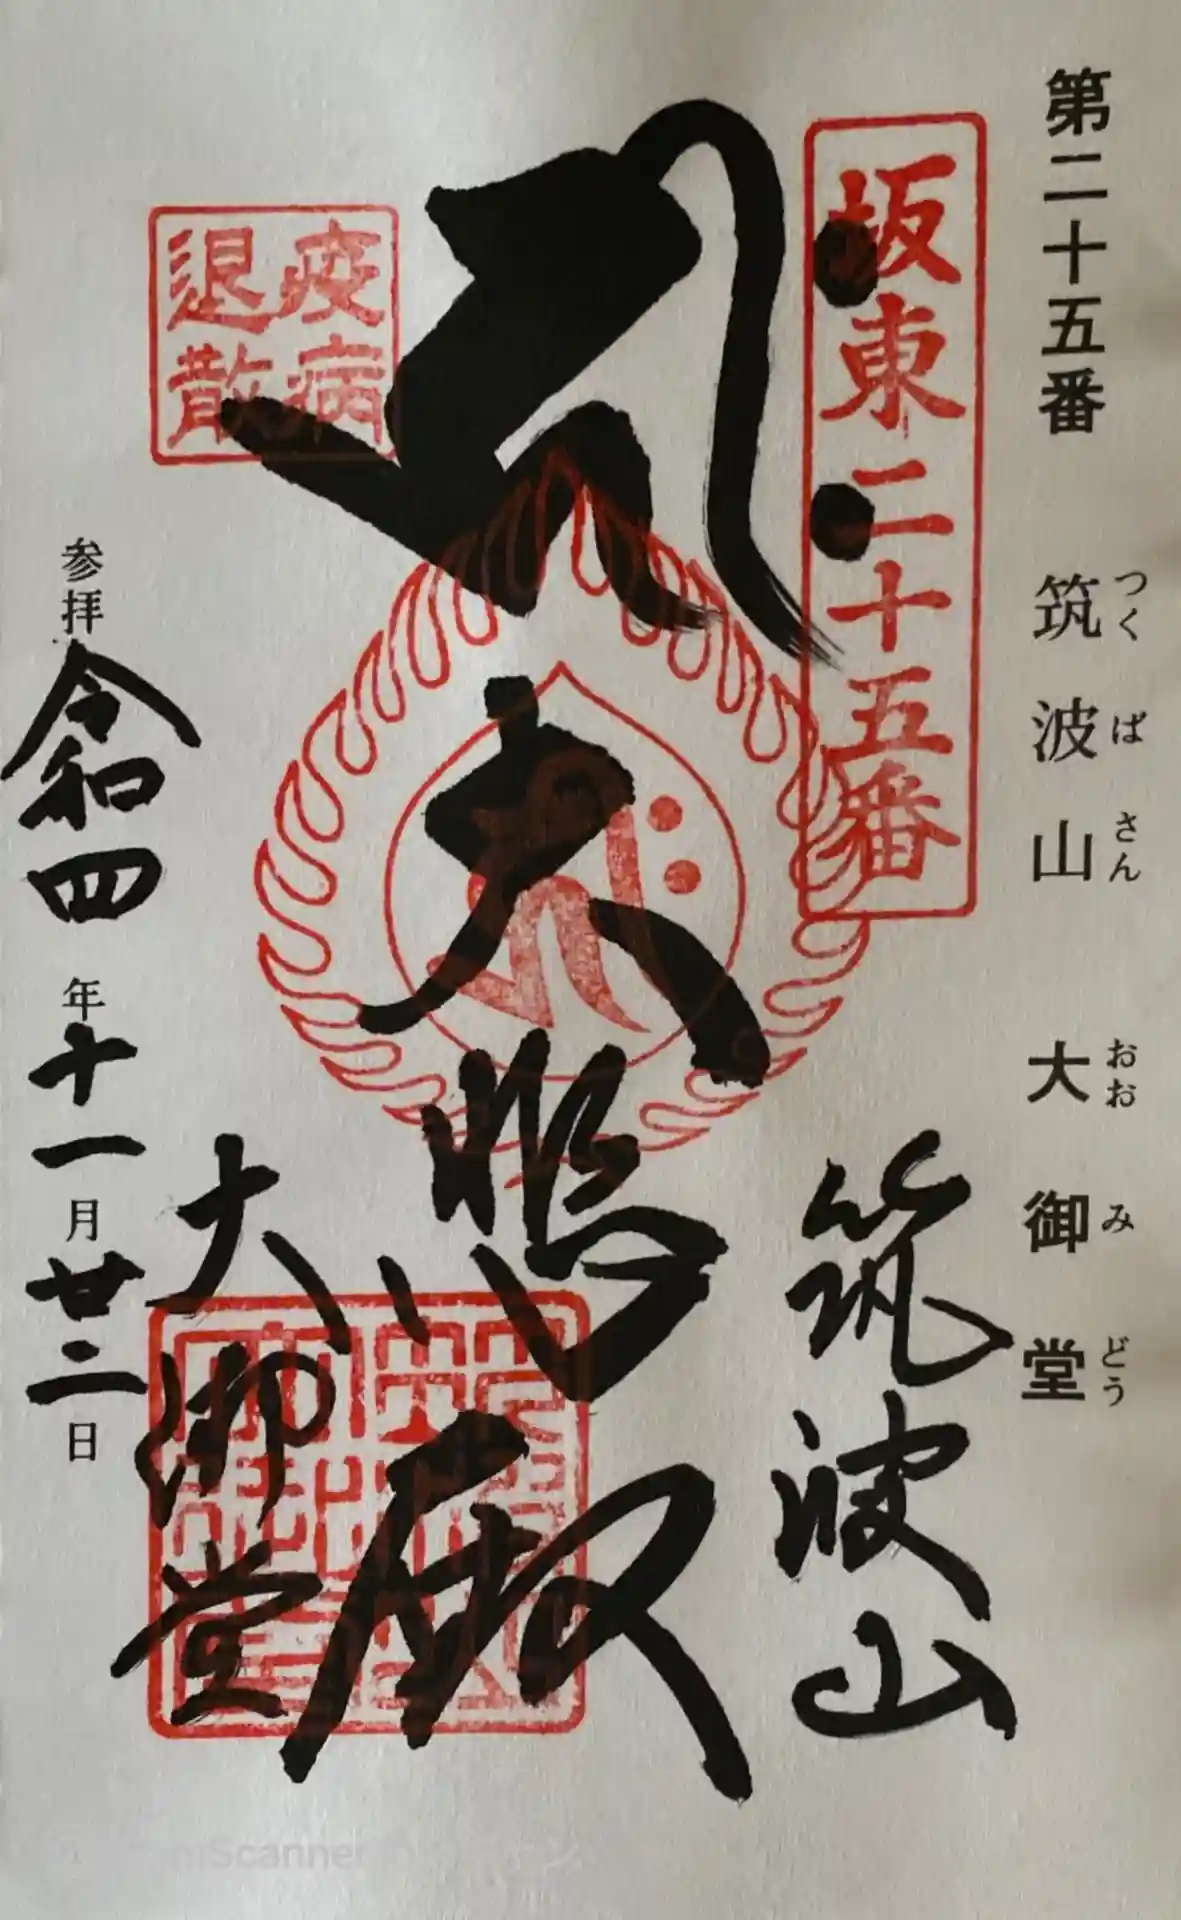 第二十五番 筑波山 大御堂
つくばさん おおみどう
坂東二十五番
筑波山
大悲殿
疫病退散
大御堂
参拝 令和四年十一月廿二日